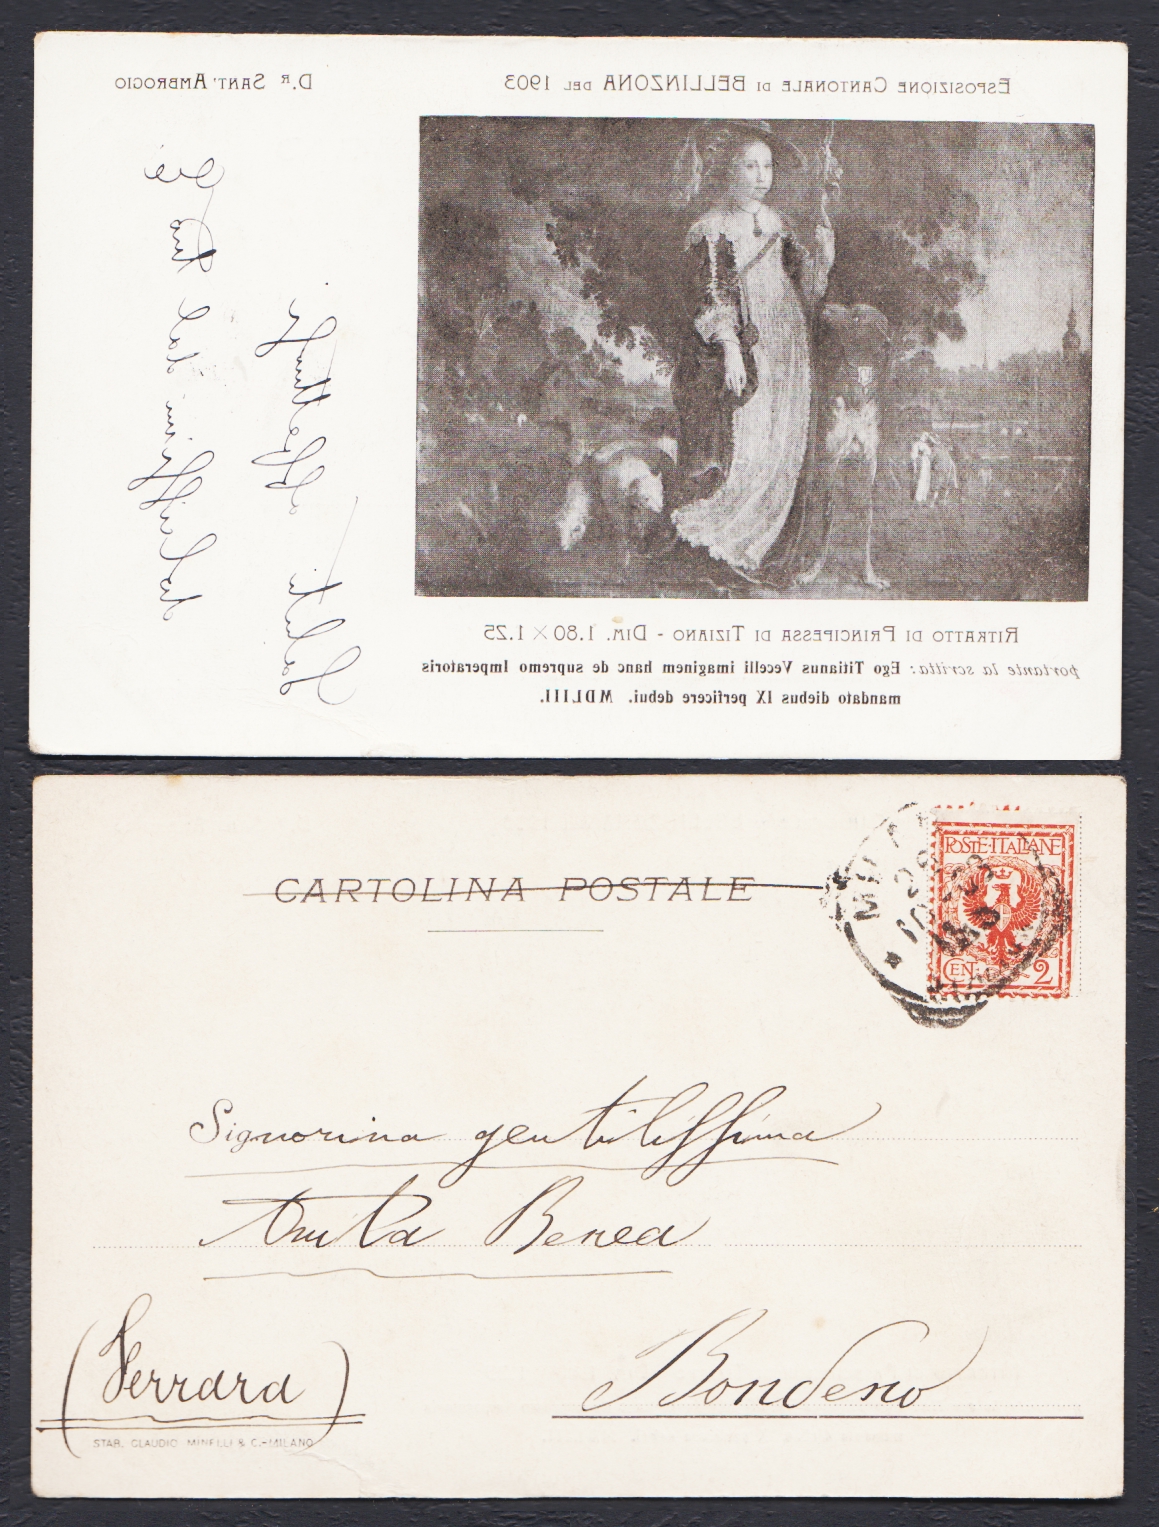 ESPOSIZIONE CANTONALE DI BELLINZONA DEL 1903
D.R SANT'AMBROGIO
RITRATTO DI PRINCIPESSA DI TIZIANO - DIM. 1.80 × 1.25
portante la scritta: Ego Titianus Vecelli imaginem hanc de supremo Imperatoris
mandato diebus IX perficere debui. MDLIII.
Saluti affettuosi
CARTOLINA POSTALE
POSTE·ITALIANE
CENT. 2
MILANO
Signorina gentilissima
Anita Benea
Bondeno
(Ferrara)
STAB. CLAUDIO MINELLI & C.-MILANO